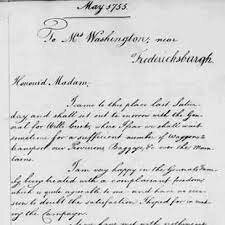 May 1755.
To Mrs Washington, near
Fredericksburgh.
Honour'd Madam,
I came to this place last Satur-
day and shall set out to morrow with the Ge-
ral for Wills Creek; where I fear we shall wait
sometime for a sufficient number of Waggons to
transport our Provisions, Baggage, &c over the Moun-
tains.
I am very happy in the General's Fam
ly being treated with a complaisant freedom
which is quite agreeable to me; and have no rea-
son to doubt the satisfaction I hoped for in ma-
king the Campaign.